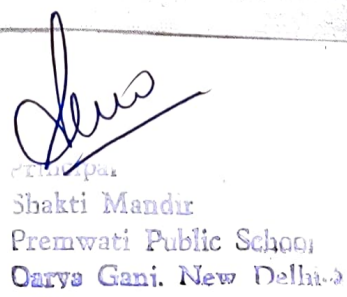 Principal
Shakti Mandir
Premwati Public School
Darya Ganj. New Delhi-2